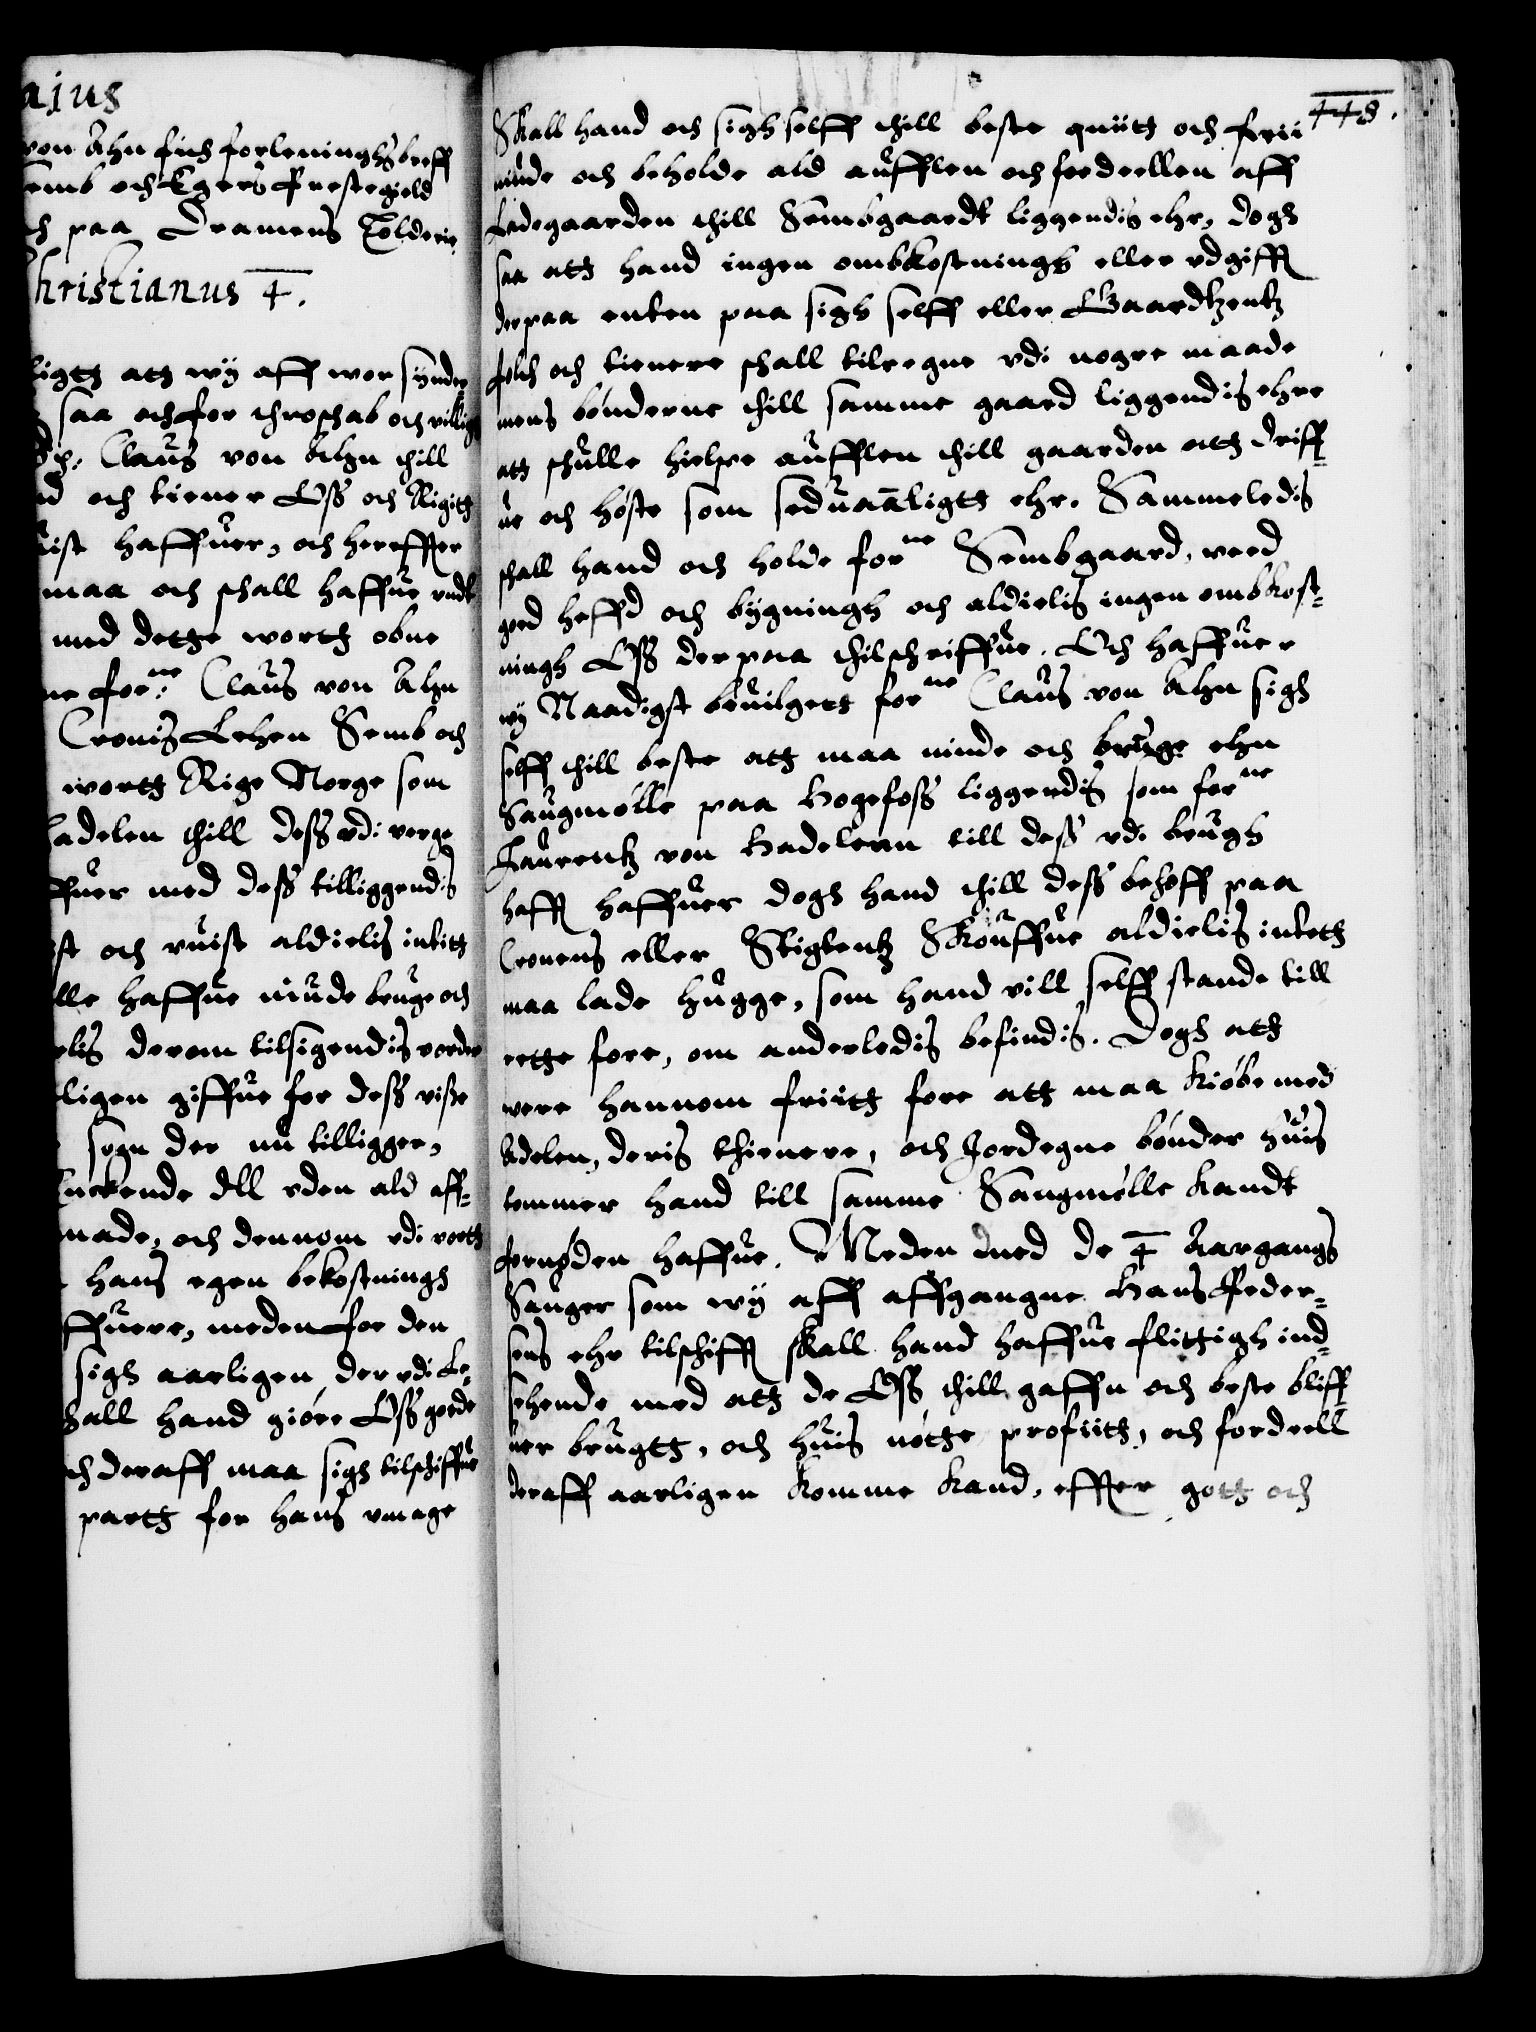 ajus
von Ahn fich forleningsbreff
Semb och Egers Prestegield
och paa Dramens Tolderie
Christianus 4.
ligtt att wy aff wor synder
saa och for throschab och villig
Claus von Ahn thill
och tiener Oss och Rigitt
uist haffuer, och hereffter
maa och schall haffue undt
med dette wortt obne
forne: Claus von Ahn
Cronis Lehen Semb och
wortt Rige Norge som
Hadelen thill dess udi verge
ffuer med dess tilliggendis
och vuist aldielis intitt
lle haffue niude bruge och
elis derom tilsigendis vorder
ligen giffue for dess visse
sogn der nu tilligger,
Enckende dll uden ald aff-
made, och dennom udi vortt
hans egen bekostningh
ffuere, meden for den
sigh aarligen der udi Le-
shall hand giøre Oss goede
och deraff maa sigh tilschiffue
partt for hans umage
448.
Skall hand och sigh selff thill beste quiitt och frii
niude och beholde ald auffllen och fordeellen aff
Ladegaarden thill Sembgaardt liggendis ehr, dogh
saa att hand ingen ombkostningh eller udgifft
derpaa enten paa sigh selff eller Gaardtzentz
folch och tienere schall tilregne udi nogre maade
mens bønderne thill samme gaard liggendis ehre
att schulle hielpe aufflen thill gaarden att driff-
ue och høste som seduaanligtt ehr. Sammeledis
schall hand och holde forne Sembgaard, veed
goed heffd och bygningh och aldielis ingen ombkost-
ningh Oss derpaa thilschriffue. Och haffuer
wy Naadigst beuilgett forne Claus von Ahn sigh
selff thill beste att maa niude och bruge ehn
Saugmølle paa Hogefoss liggendis som forne
Laurentz von Hadelenn till dess udi brugh
hafft haffuer dogh hand thill dess behoff paa
Cronens eller Stigtentz Skouffue aldielis inteth
maa lade hugge, som hand vill selff stande till
rette fore, om anderledis befindis. Dogh att
vere hannom friitt fore att maa kiøbe med
Adelen, deris thienere, och Jordegne bønder huis
tømmer hand till samme Saugmølle kandt
fornøden haffue. Meden med de 4 Aargangs
Sauger som wy aff affgangne Hans Peder-
sens ehr tilschifft skall hand haffue flittigh ind-
sehende med att de Oss thill gaffn och beste bliff-
uer brugtt, och huis nøtte profiitt, och fordeell
deraff aarligen komme kand, effter gott och